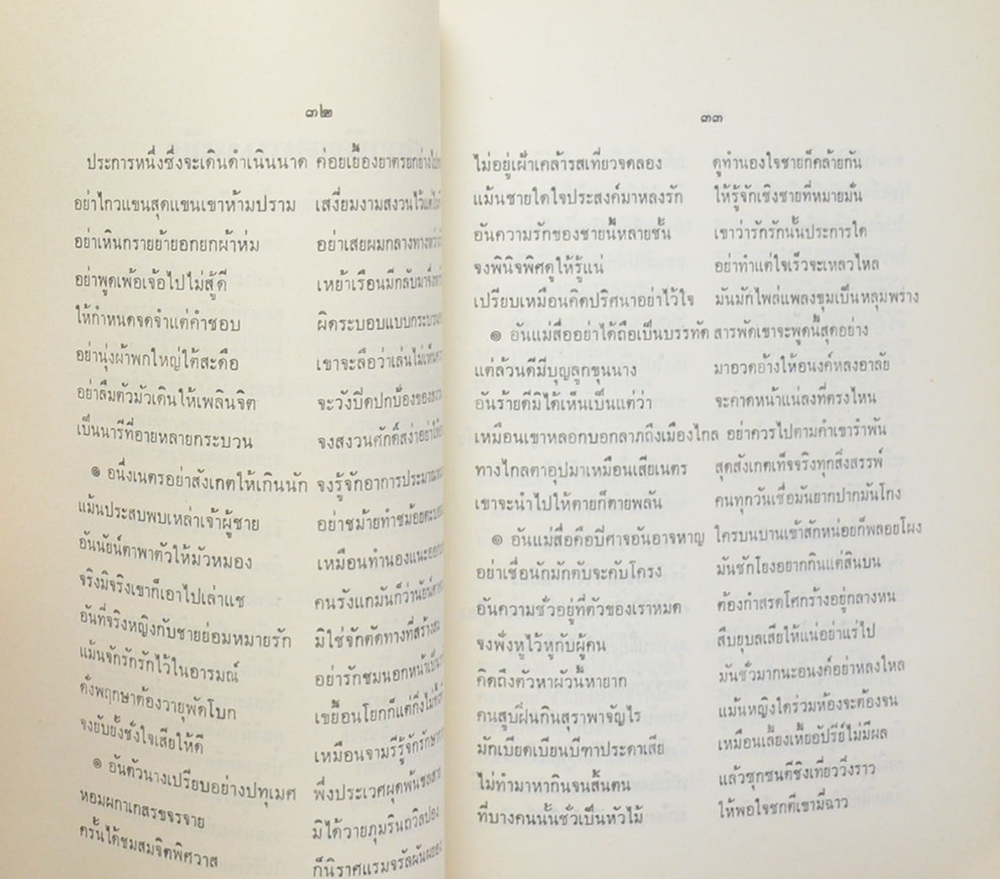 ๓๒
ประการหนึ่งซึ่งจะเดินดำเนินนาด ค่อยเยื้องยาตรยกย่างไป
อย่าไกวแขนสุดแขนเขาห้ามปราม เสงี่ยมงามสงวนไว้แต่ใน
อย่าเหินกรายย้ายอกยกผ้าห่ม อย่าเสยผมกลางทาง
อย่าพูดเพ้อเจ้อไปไม่สู้ดี เหย้าเรือนมีกลับมาจึง
ให้กำหนดจดจำแต่คำชอบ ผิดระบอบแบบกระบวน
อย่านุ่งผ้าพกใหญ่ใต้สะดือ เขาจะลือว่าเล่นไม่เห็น
อย่าลืมตัวมัวเดินให้เพลินจิต จะวังปีดปกป้องของ
เป็นนารีที่อายหลายกระบวน จงสงวนศักดิ์สง่าอย่าให้
๏ อนึ่งเนตรอย่าสังเกตให้เกินนัก จงรู้จักอาการประมาณ
แม้นประสบพบเหล่าเจ้าผู้ชาย อย่าชม้ายทำชม้อย
อันนัยน์ตาพาตัวให้มัวหมอง เหมือนทำนองแนะออก
จริงมิจริงเขาก็เอาไปเล่าแช คนรังแกมันก็ว่านัยน์ตา
อันที่จริงหญิงกับชายย่อมหมายรัก มิใช่จักตัดทางที่สร้าง
แม้นจักรักรักไว้ในอารมณ์ อย่ารักชมนอกหน้าเป็น
ดั่งพฤกษาต้องวายุพัดโบก เขยื้อนโยกก็แต่กิ่งไม่
จงยับยั้งชั่งใจเสียให้ดี เหมือนจามรีรู้จักรักษา
๏ อันตัวนางเปรียบอย่างปทุเมศ พึ่งประเวศผุดพ้นชล
หอมผกาเกสรขจรจาย มิได้วายภุมรินถวิลปอง
ครั้นได้ชมสมจิตพิศวาส ก็นิราศแรมจรัลผันผยอง
๓๓
ไม่อยู่เฝ้าเคล้ารสเที่ยวจดลอง ดูทำนองใจชายก็คล้ายกัน
แม้นชายใดใจประสงค์มาหลงรัก ให้รู้จักเชิงชายที่หมายมั่น
อันความรักของชายนี้หลายชั้น เขาว่ารักรักนั้นประการใด
จงพินิจพิศดูให้รู้แน่ อย่าทำแต่ใจเร็วจะเหลวไหล
เปรียบเหมือนคิดปริศนาอย่าไว้ใจ มันมักไพล่แพลงขุมเป็นหลุมพราง
๏ อันแม่สื่ออย่าได้ถือเป็นบรรทัด สารพัดเขาจะพูดนี้สุดอย่าง
แต่ล้วนดีมีบุญลูกขุนนาง มาอวดอ้างให้อนงค์หลงอาลัย
อันร้ายดีมิได้เห็นเป็นแต่ว่า จะคาดหน้าแน่ลงที่ตรงไหน
เหมือนเขาหลอกบอกลาภถึงเมืองไกล อย่าควรไปตามคำเขารำพัน
ทางไกลตาอุปมาเหมือนเสียเนตร สุดสังเกตเท็จจริงทุกสิ่งสรรพ์
เขาจะนำไปให้ตายก็ตายพลัน คนทุกวันเชื่อมันยากปากมันโกง
๏ อันแม่สื่อคือปีศาจอันอาจหาญ ใครบนบานเข้าสักหน่อยก็พลอยโผง
อย่าเชื่อนักมักตับจะคับโครง มันชักโยงอยากกินแต่สินบน
อันความชั่วอยู่ที่ตัวของเราหมด ต้องกำสรดโศกร้างอยู่กลางหน
จงฟังหูไว้หูกับผู้คน สืบยุบลเสียให้แน่อย่าแร่ไป
คิดถึงตัวหาผัวนี้หายาก มันชั่วมากนะอนงค์อย่าหลงใหล
คนสูบฝิ่นกินสุราพาจัญไร แม้นหญิงใดร่วมห้องจะต้องจน
มักเบียดเบียนบีฑาประดาเสีย เหมือนเลี้ยงเหี้ยอัปรีย์ไม่มีผล
ไม่ทำมาหากินจนสิ้นตน แล้วซุกซนตีชิงเที่ยววิ่งราว
ที่บางคนนั้นชั่วเป็นหัวไม้ ให้พอใจชกตีเขามี่ฉาว